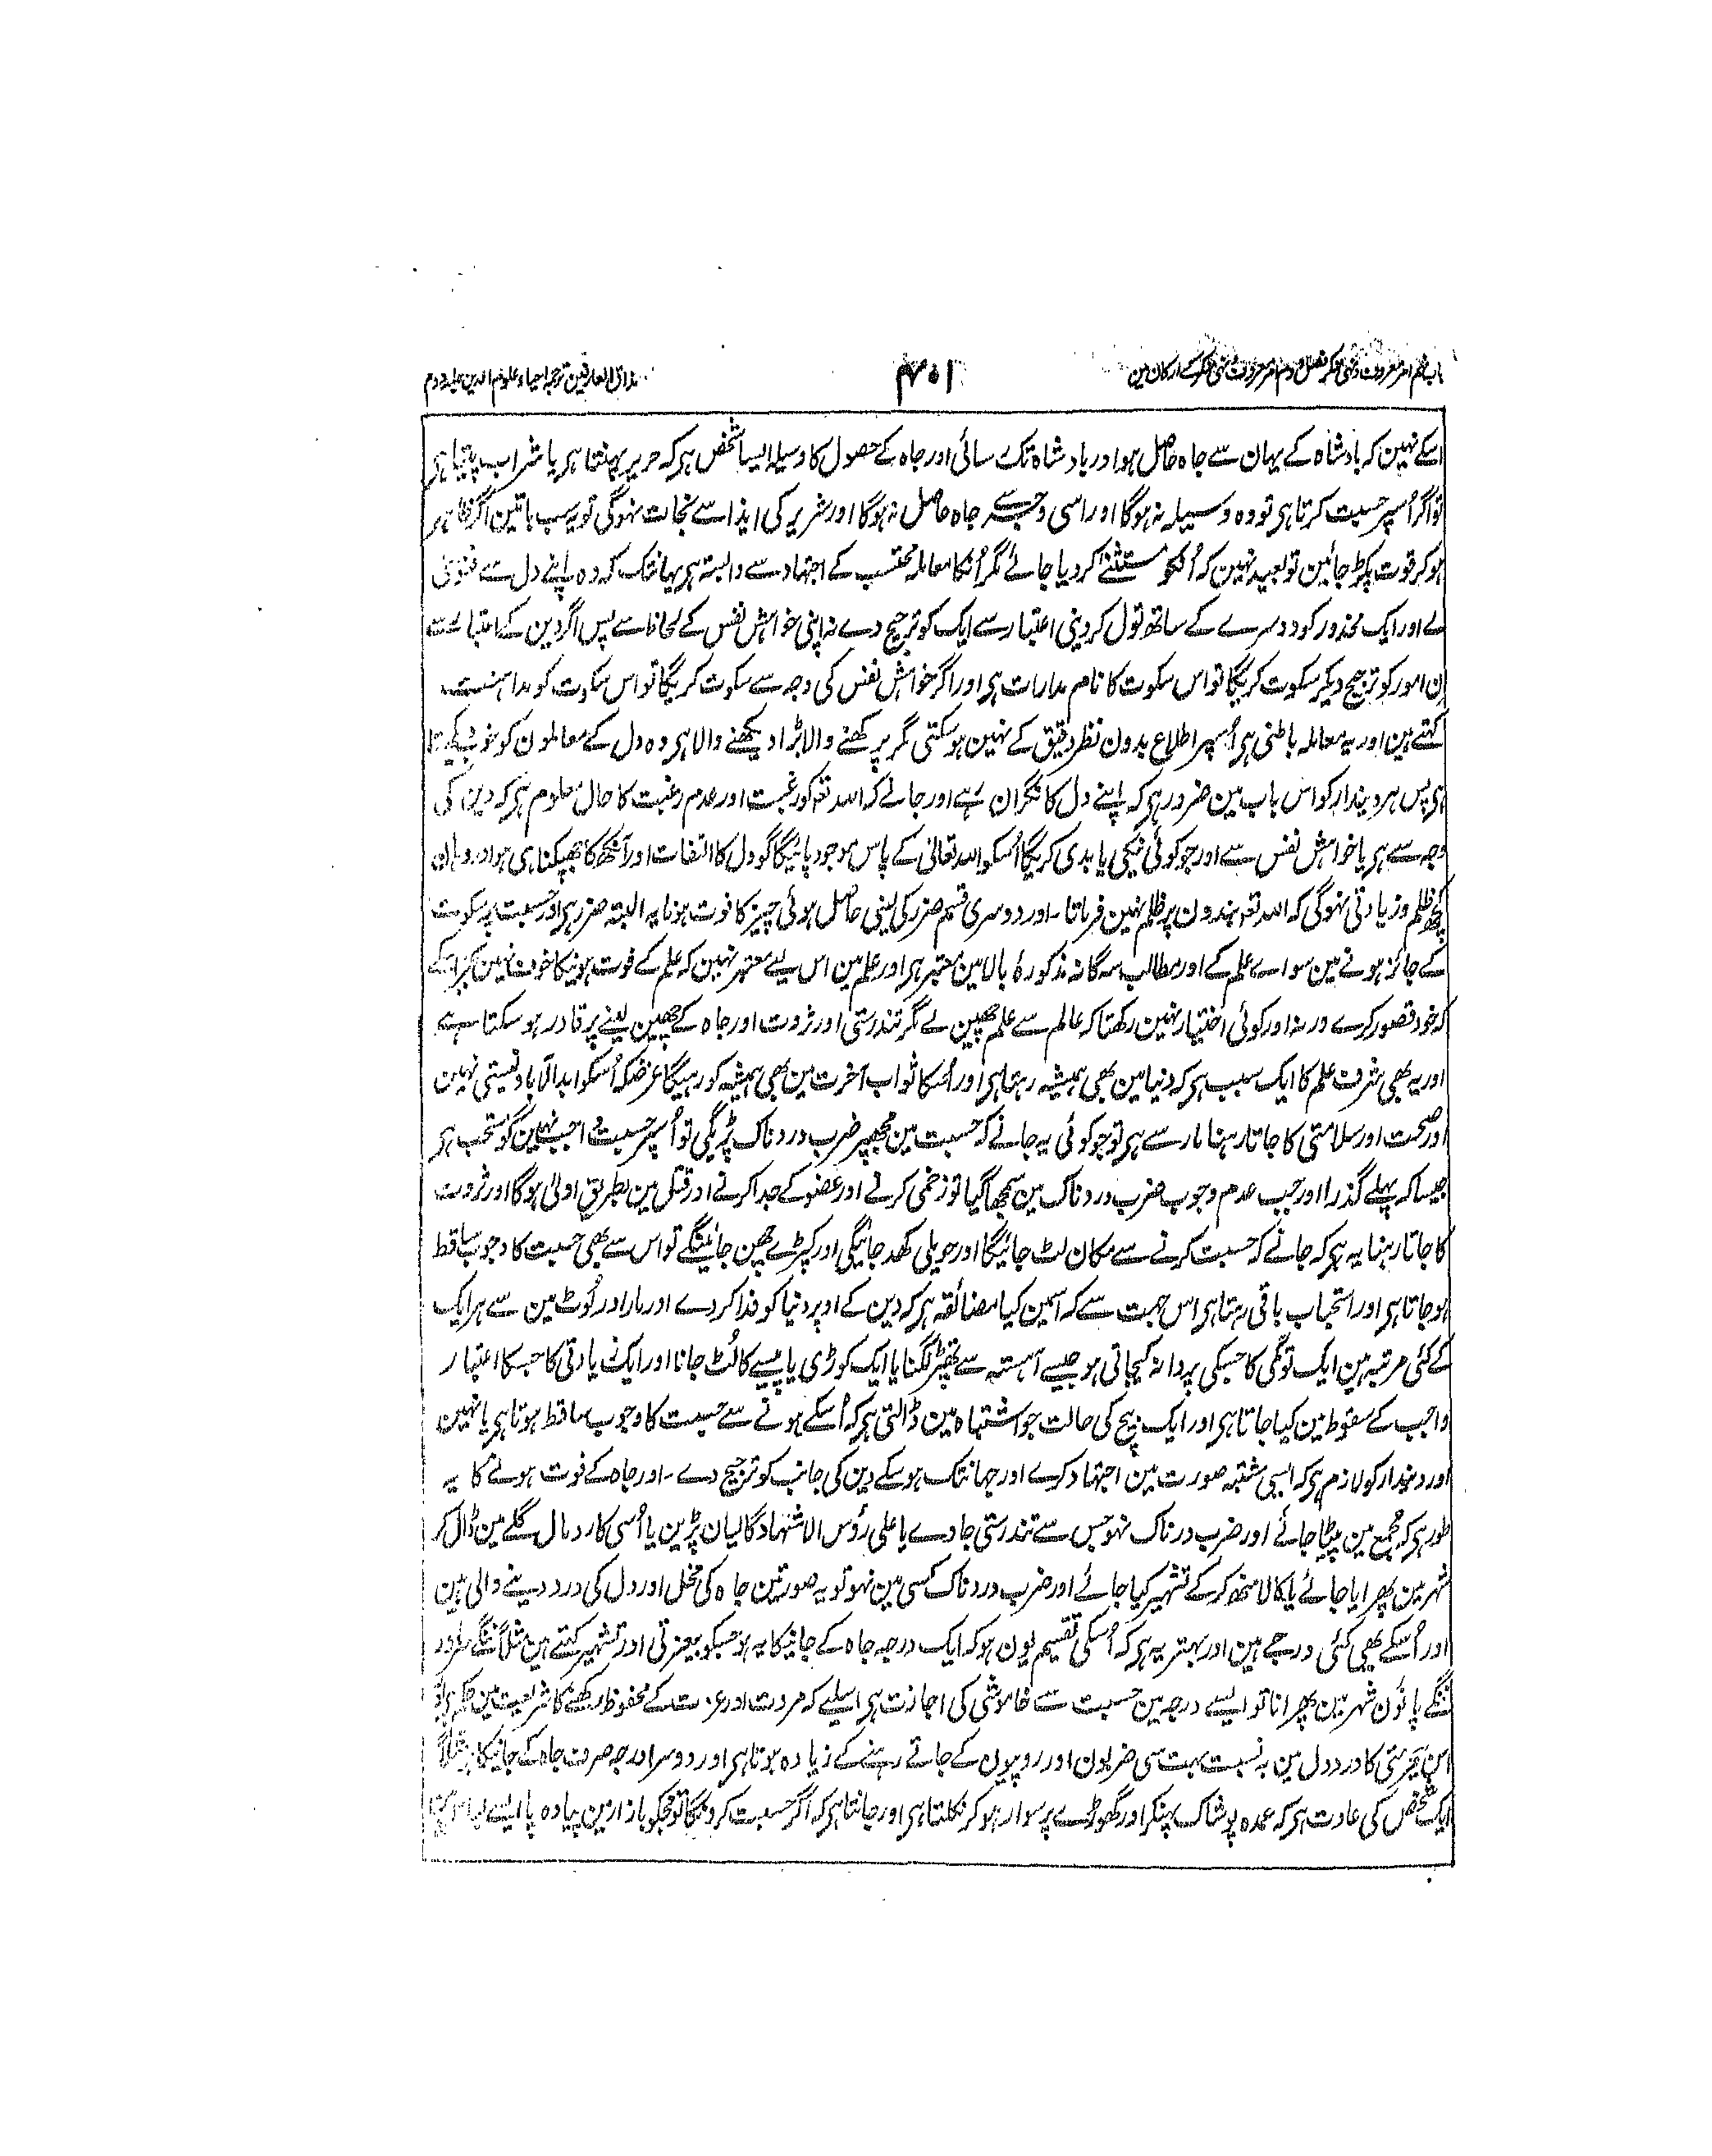 باب نہم امر معروف و نہی منکر فصل دوم امر معروف و نہی منکر کے ارکان مین
مذاق العارفین ترجمہ احیاء علوم الدین جلد دوم
اسکے نہین کہ بادشاہ کے یہان سے جاہ حاصل ہو اور بادشاہ تک رسائی اور جاہ کے حصول کا وسیلہ ایسا شخص ہی کہ حریر پہنتا ہی یا شراب پیتا ہی
تو اگر اُسپر حسبت کرتا ہی تو وہ وسیلہ نہ ہوگا اور اسی وجہ سے جاہ حاصل نہ ہوگا اور شریر کی ایذا سے نجات نہوگی تو یہ سب باتین اگر ظاہر
ہو کر قوت پکڑ جائین تو بعید نہین کہ اُنکو مستثنےٰ کر دیا جائے مگر اُنکا معاملہ محتسب کے اجتہاد سے وابستہ ہی یہانتک کہ وہ اپنے دل سے فتوی
لے اور ایک محذور کو دوسرے کے ساتھ تول کر دینی اعتبار سے ایک کو ترجیح دے نہ اپنی خواہش نفس کے لحاظ سے پس اگر دین کے اعتبار سے
ان امور کو ترجیح دیکر سکوت کریگا تو اس سکوت کا نام مدارات ہی اور اگر خواہش نفس کی وجہ سے سکوت کریگا تو اس سکوت کو مداہنت
کہتے ہین اور یہ معاملہ باطنی ہی اُسپر اطلاع بدون نظر دقیق کے نہین ہوسکتی مگر پرکھنے والا بڑا دیکھنے والا ہی وہ دل کے معاملون کو خوب دیکھتا
ہی پس ہر دیندار کو اس باب مین ضرور ہی کہ اپنے دل کا نگران رہے اور جانے کہ اللہ تعہ کو رغبت اور عدم رغبت کا حال معلوم ہی کہ دین کی
وجہ سے ہی یا خواہش نفس سے اور جو کوئی نیکی یا بدی کریگا اُسکو اللہ تعالیٰ کے پاس موجود پائیگا گو دل کا التفات اور آنکھ کا جھپکنا ہی ہو اور وہان
کچھ ظلم و زیادتی نہوگی کہ اللہ تعہ بندون پر ظلم نہین فرماتا ۔ اور دوسری قسم ضرر کی یعنی حاصل ہوئی چیز کا فوت ہونا یہ البتہ ضرر ہی اور حسبت پر سکوت
کے جائز ہونے مین سواے علم کے اور مطالب سہ گانہ مذکورۂ بالا مین معتبر ہی اور علم مین اس لیے معتبر نہین کہ علم کے فوت ہونیکا خوف نہین بجز اسکے
کہ خود قصور کرے ورنہ اور کوئی اختیار نہین رکھتا کہ عالم سے علم چھین لے مگر تندرستی اور ثروت اور جاہ کے چھین لینے پر قادر ہو سکتا ہے
اور یہ بھی شرف علم کا ایک سبب ہی کہ دنیا مین بھی ہمیشہ رہتا ہی اور اُسکا ثواب آخرت مین بھی ہمیشہ کو رہیگا غرضکہ اُسکو ابد الآباد نیستی نہین
اور صحت اور سلامتی کا جاتا رہنا مار سے ہی تو جو کوئی یہ جانے کہ حسبت مین مجھپر ضرب دردناک پڑیگی تو اُسپر حسبت واجب نہین گو مستحب ہی
جیسا کہ پہلے گذرا اور جب عدم وجوب ضرب دردناک مین سمجھا گیا تو زخمی کرنے اور عضو کے جدا کرنے اور قتل مین بطریق اولیٰ ہوگا اور ثروت
کا جاتا رہنا یہ ہی کہ جانے کہ حسبت کرنے سے مکان لٹ جائیگا اور حویلی کھد جائیگی اور کپڑے چھین جائینگے تو اس سے بھی حسبت کا وجوب ساقط
ہو جاتا ہی اور استحباب باقی رہتا ہی اس جہت سے کہ اسمین کیا مضائقہ ہی کہ دین کے اوپر دنیا کو فدا کر دے اور مار اور لُوٹ مین سے ہر ایک
کے کئی مرتبہ ہین ایک تو کمی کا جسکی پروا نہ کیجاتی ہو جیسے آہستہ سے تھپڑ لگنا یا ایک کوڑی یا پیسے کا لُٹ جانا اور ایک زیادتی کا جسکا اعتبار
واجب کے سقوط مین کیا جاتا ہی اور ایک بیچ کی حالت جو اشتباہ مین ڈالتی ہی کہ اُسکے ہونے سے حسبت کا وجوب ساقط ہوتا ہی یا نہین
اور دیندار کو لازم ہی کہ ایسی مشتبہ صورت مین اجتہاد کرے اور جہانتک ہو سکے دین کی جانب کو ترجیح دے ۔ اور جاہ کے فوت ہونے کا یہ
طور ہی کہ مجمع مین پیٹا جائے اور ضرب دردناک نہو جس سے تندرستی جاوے یا علی رؤس الاشہاد گالیان پڑین یا اُسی کا رومال گلے مین ڈال کر
شہر مین پھرایا جائے یا کالا منھ کر کے تشہیر کیا جائے اور ضرب دردناک کسی مین نہو تو یہ صورتین جاہ کی مخل اور دل کی درد دینے والی ہین
اور اُسکے بھی کئی درجے ہین اور بہتر یہ ہی کہ اُسکی تقسیم یون ہو کہ ایک درجہ جاہ کے جانیکا یہ ہو جسکو بیعزتی اور تشہیر کہتے ہین مثلاً ننگے سر اور
ننگے پانؤن شہر مین پھرانا تو ایسے درجہ مین حسبت سے خاموشی کی اجازت ہی اسلیے کہ مروت اور عزت کے محفوظ رکھنے کا شریعت مین حکم ہی تو
اس بیعزتی کا درد دل مین بہ نسبت بہت سی ضربون اور روپیون کے جاتے رہنے کے زیادہ ہوتا ہی اور دوسرا درجہ صرف جاہ کے جانیکا ہی مثلاً
ایک شخص کی عادت ہی کہ عمدہ پوشاک پہنکر اور گھوڑے پر سوار ہو کر نکلتا ہی اور جانتا ہی کہ اگر حسبت کرونگا تو مجکو بازار مین پیادہ پا ایسے لباس